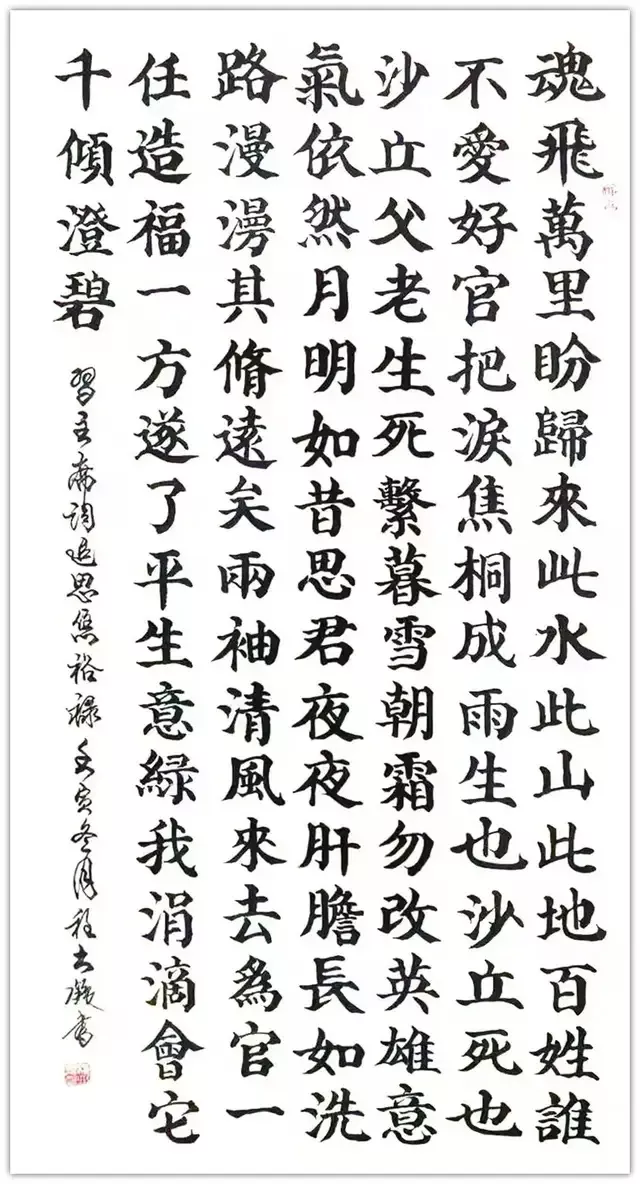 魂飛萬里盼歸來此水此山此地百姓誰
不愛好官把淚焦桐成雨生也沙丘死也
沙丘父老生死繫暮雪朝霜勿改英雄意
氣依然月明如昔思君夜夜肝膽長如洗
路漫漫其脩遠矣兩袖清風來去爲官一
任造福一方遂了平生意綠我涓滴會它
千傾澄碧
習主席詞追思焦裕祿壬寅冬月程大書